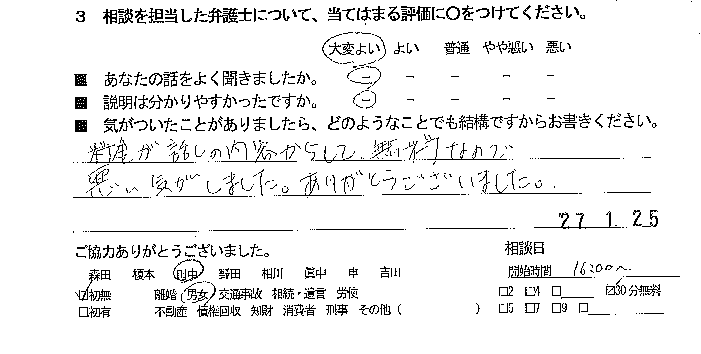 3 相談を担当した弁護士について、当てはまる評価に〇をつけてください。
大変よい よい 普通 やや悪い 悪い
■ あなたの話をよく聞きましたか。 － － － － －
■ 説明は分かりやすかったですか。 － － － － －
■ 気がついたことがありましたら、どのようなことでも結構ですからお書きください。
が 話しの内容からして、無料なので
悪い気がしました。ありがとうございました。
27 1. 25
ご協力ありがとうございました。 相談日
森田 榎本 田中 野田 相川 眞中 申 吉田 開始時間 16:00〜
☑初無 離婚・男女・交通事故 相続・遺言 労使 □2 □4 □ ☑30分無料
□初有 不動産 債権回収 知財 消費者 刑事 その他 ( ) □5 □7 □9 □